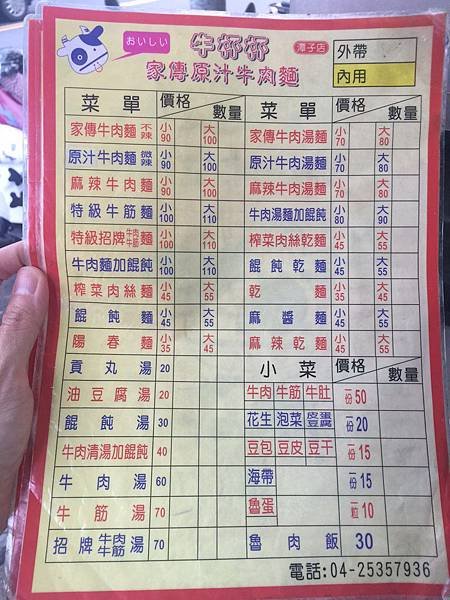 おいしい 牛杯杯 潭子店
家傳原汁牛肉麵
外帶
內用
菜單 價格 數量 菜單 價格 數量
家傳牛肉麵 不辣 小90 大100 家傳牛肉湯麵 小70 大80
原汁牛肉麵 微辣 小90 大100 原汁牛肉湯麵 小70 大80
麻辣牛肉麵 小90 大100 麻辣牛肉湯麵 小70 大80
特級牛筋麵 小100 大110 牛肉湯麵加餛飩 小80 大90
特級招牌牛肉牛筋麵 小100 大110 榨菜肉絲乾麵 小45 大55
牛肉麵加餛飩 小100 大110 餛飩乾麵 小45 大55
榨菜肉絲麵 小45 大55 乾麵 小45 大55
餛飩麵 小45 大55 麻醬麵 小45 大55
陽春麵 小35 大45 麻辣乾麵 小45 大55
貢丸湯 20 小菜 價格 數量
油豆腐湯 20 牛肉 牛筋 牛肚 一份50
餛飩湯 30 花生 泡菜 皮蛋豆腐 一份20
牛肉清湯加餛飩 40 豆包 豆皮 豆干 一份15
牛肉湯 60 海帶 一份15
牛筋湯 70 魯蛋 一粒10
招牌牛肉牛筋湯 70 魯肉飯 30
電話:04-25357936